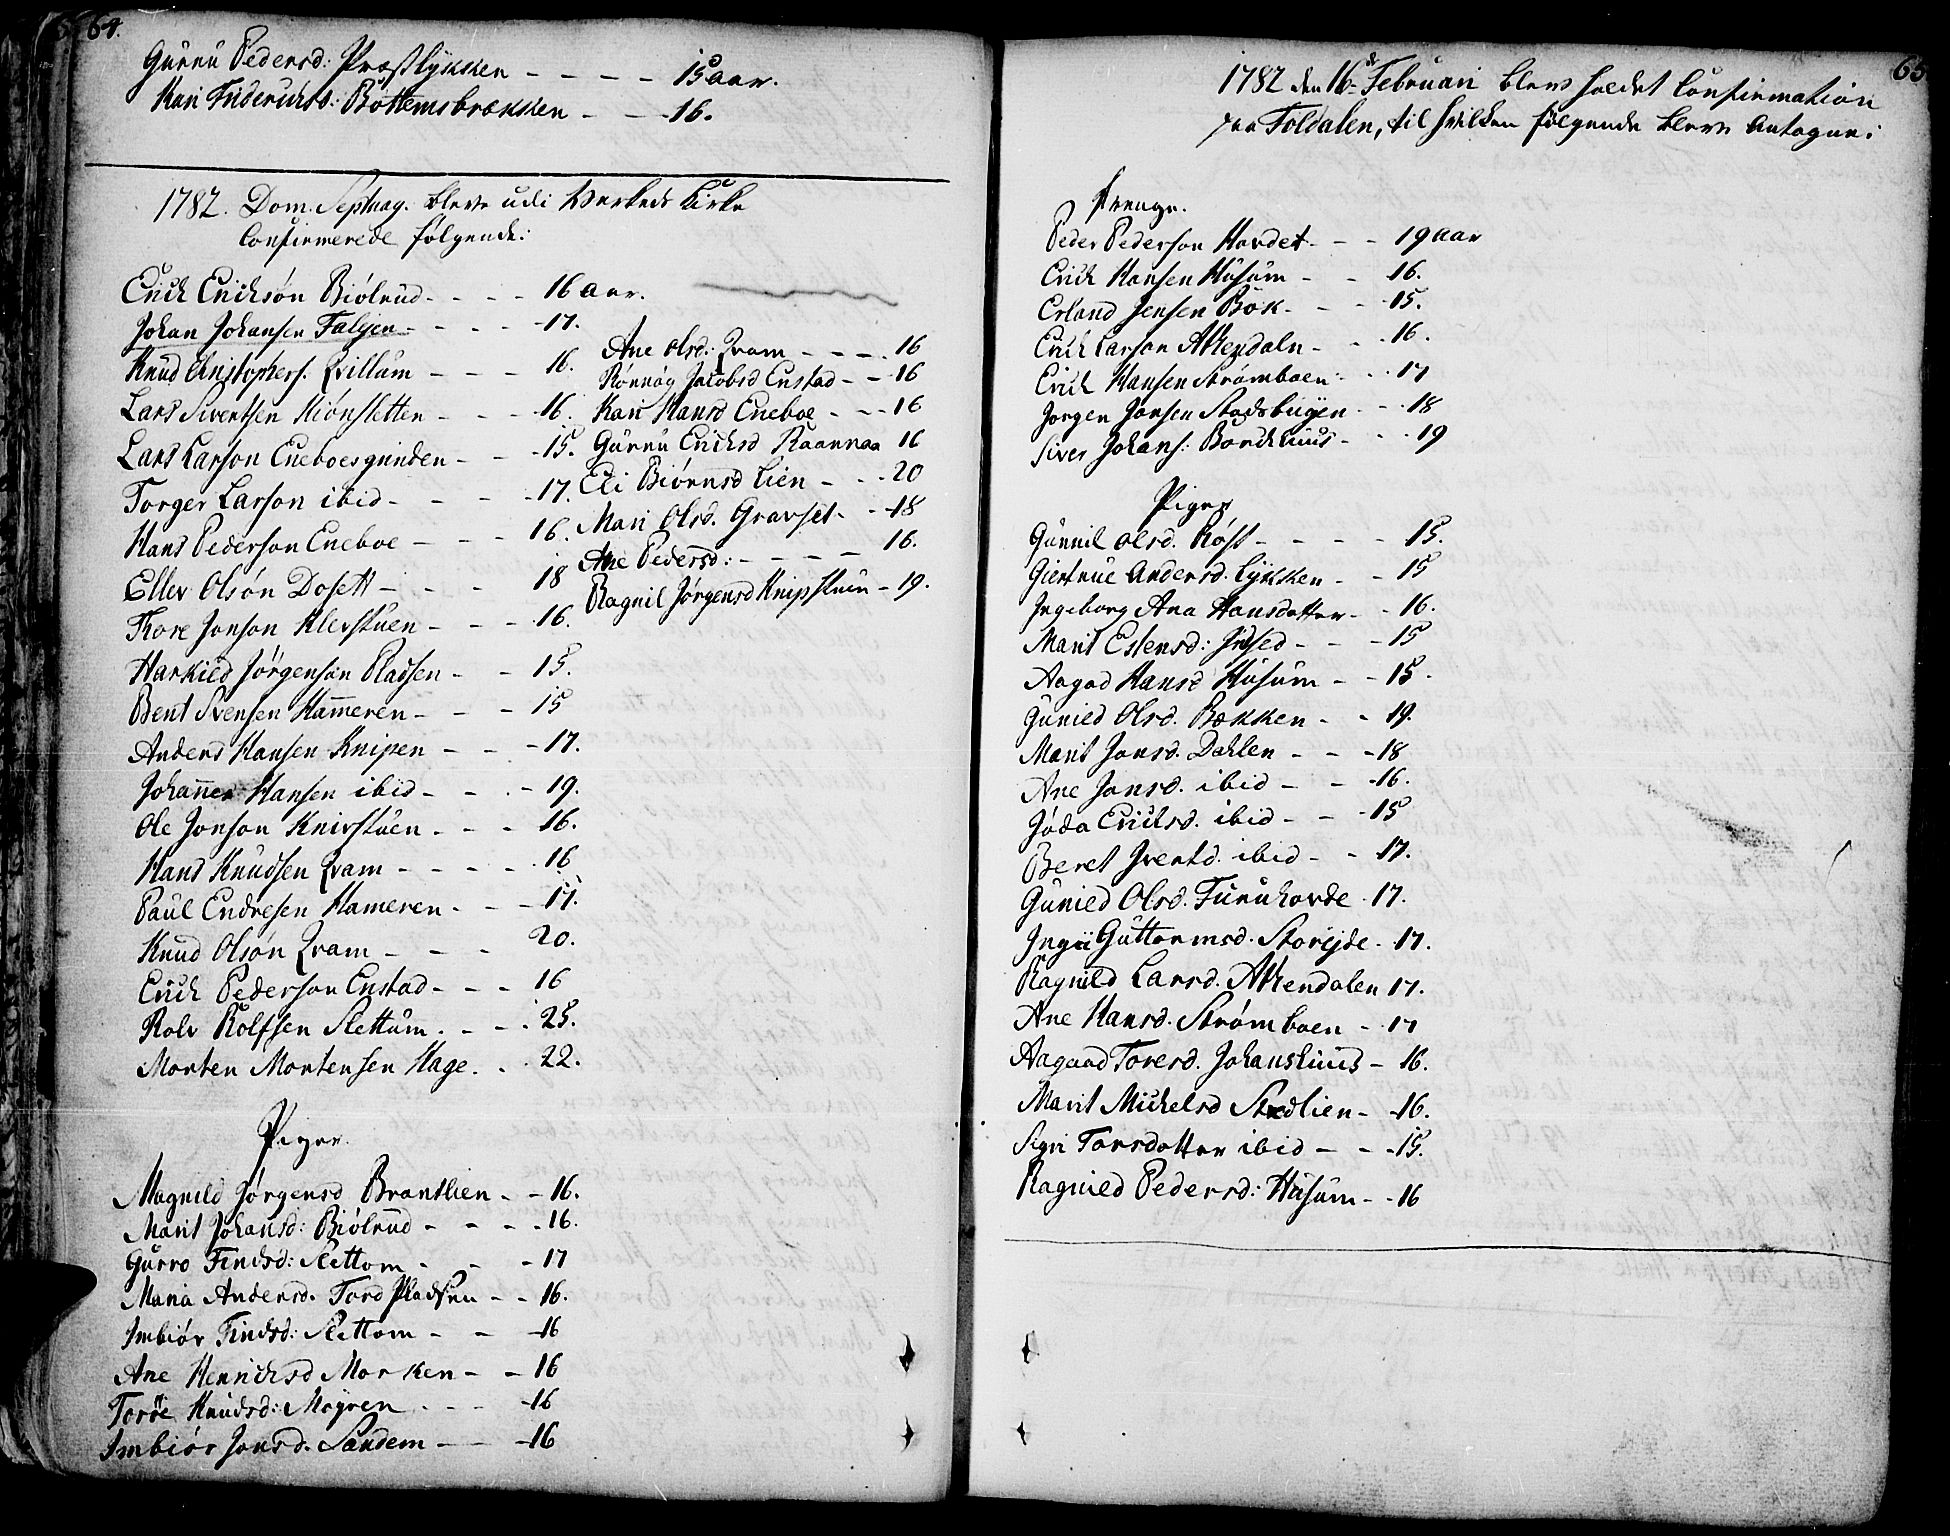 64.
Gurru Pedersd: Præstlykken - - - - 15 aar.
Kari Friderichsd: Bottemsbrækken - - 16.
1782. Dom. Septuag. bleve udi Werkeds Kirke
Confirmerede følgende:
Erich Ericksøn Biølrud - - - - 16 aar.
Johan Johansen Falgen - - - - 17.
Knud Christophers. Qvillum - - - 16.
Lars Siversen Miønsletten - - - 16.
Lars Larson Eneboesgrinden - - 15.
Torger Larson ibid - - - - 17.
Hans Pederson Eneboe - - - 16.
Eller Olsøn Dosett - - - 18
Thore Jonson Klevstuen - - - 16.
Harkild Jørgenson Pladsen - - 15.
Bent Svensen Hameren - - - 15
Anders Hansen Knipen - - - 17.
Johannes Hansen ibid - - - 19.
Ole Jonson Knivstuen - - - 16.
Hans Knudsen Qvam - - - - 16
Paul Endresen Hameren - - - 17.
Knud Olsøn Qvam - - - 20.
Erich Pederson Enstad - - - 16
Rolv Rolfsen Slettum - - - 25.
Morten Mortensen Hage - - 22.
Piger.
Magnild Jørgensd Brantlien - - 16.
Marit Johansd: Biølrud - - - - 16.
Gurro Findsd: Slettom - - - 17
Maria Andersd. Tord Pladsen - - 16.
Imbiør Findsd: Slettom - - 16
Ane Henrichsd Morken - - 16
Toroe Knudsd: Moÿren - - - 16
Imbiør Jonsd. Sandem - - 16
Ane Olsd: Qvam - - - - 16
Rønnøg Jacobsd Enstad - - 16
Kari Hansd Eneboe - - - 16
Gurru Erichsd Raannaa 16
Eli Biørnsd Lien - - - 20
Mari Olsd. Gravset - - 18
Ane Pedersd: - - - - 16.
Ragnil Jørgensd Knipstuen - 19.
65
1782 den 16de Februari blev holdet Confirmation
paa Foldalen, til hvilken følgende bleve Antagne:
Drenge.
Peder Pederson Hovdet - - - 19 aar
Erich Hansen Husum - - 16.
Erland Jensen Bok - - - 15.
Erich Larson Atnedaln - - - 16.
Erich Hansen Strømboen - - - 17
Jorgen Jonsen Stadsbuÿen - - - 18
Siver Johans: Bordhuus - - - 19
Piger
Gunnil Olsd. Røst - - - - 15.
Giertrue Andersd. Lÿkken - - 15
Ingeborg Ana Hansdotter - - 16.
Marit Estensd: Indsed - - - 15
Aagod Hansd Husum - - 15.
Gunild Olsd. Bækken - - 19.
Marit Jonsd. Dahlen - - - 18
Ane Jonsd. ibid - - - 16.
Jøda Erichsd. ibid - - - 15
Beret Iversd. ibid - - 17.
Gunild Olsd. Furuhovde - 17.
Ingri Guttormsd. Storejde - 17.
Ragnild Larsd. Atnedalen 17.
Ane Hansd. Strømboen - 17
Aagaad Toresd. Johanshuus - 16.
Marit Michelsd Stedlien - 16.
Sigri Torsdotter ibid - - - 15.
Ragnild Pedersd: Husum - - 16